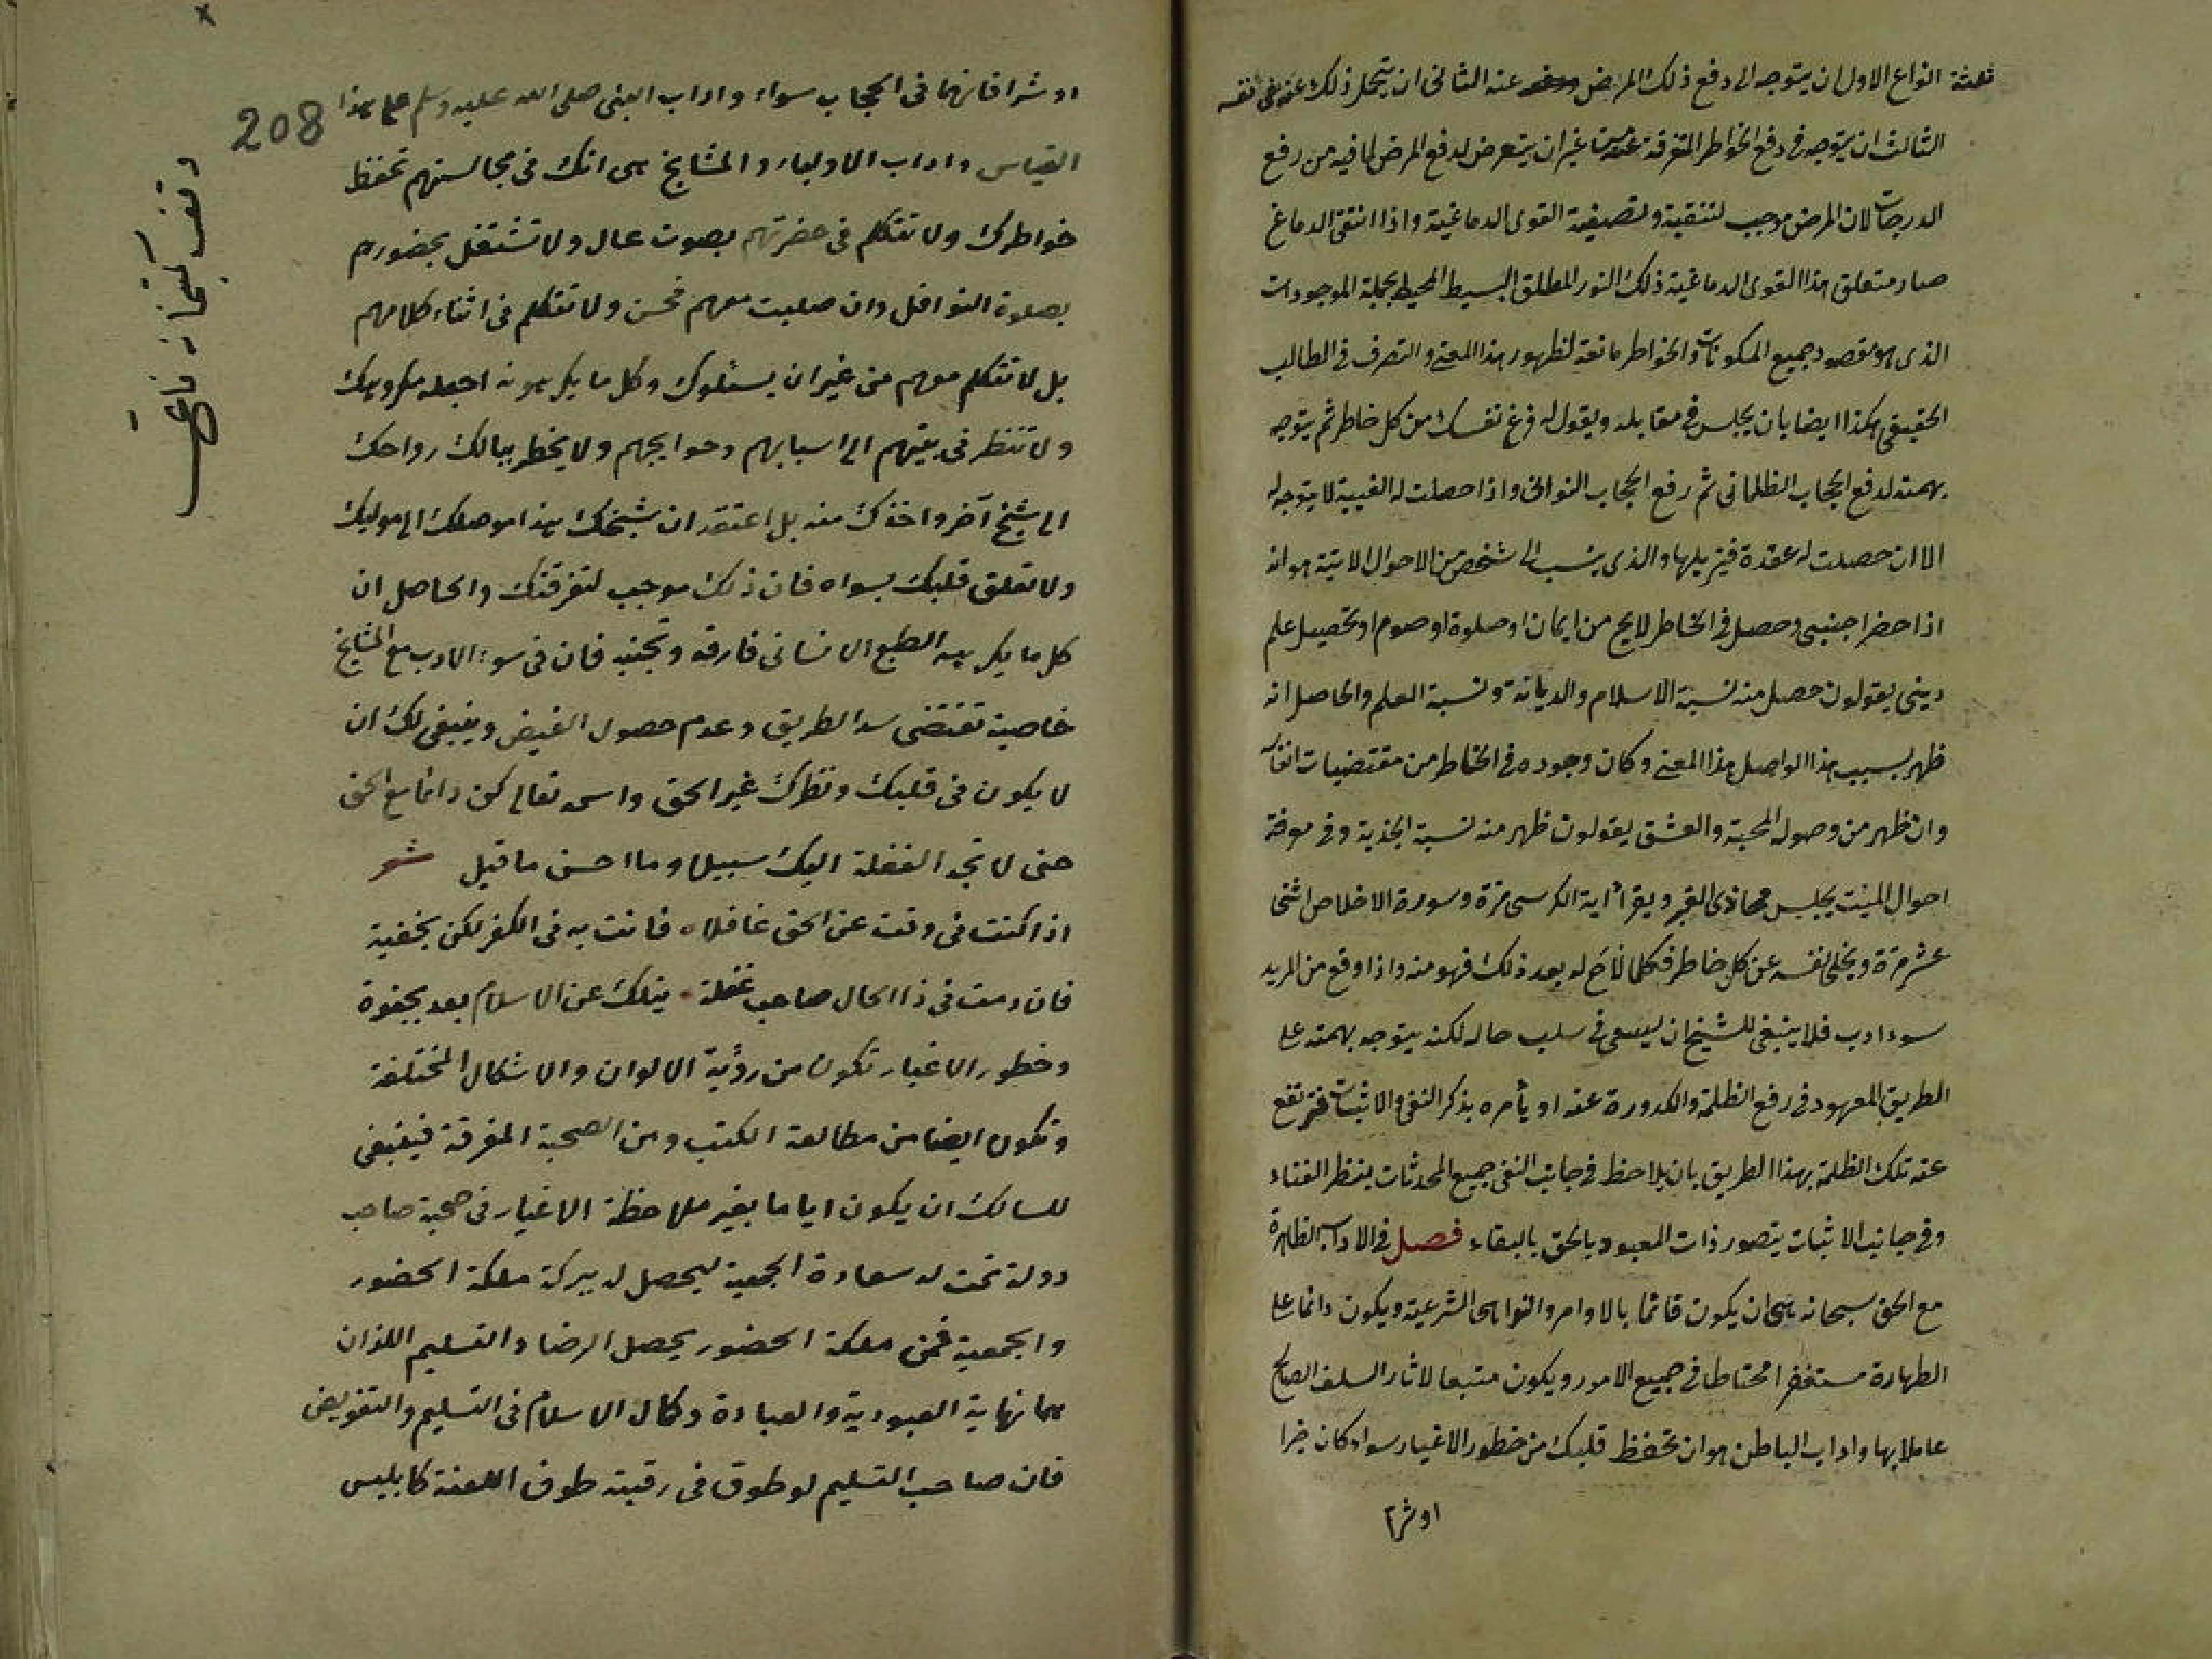 ثلثة انواع الاول ان يتوجه الى دفع ذلك المرض عنه الثانى ان يتحمل ذلك عنه فى نفسه
الثالث ان يتوجه فى دفع الخواطر المتفرقة عنه من غير ان يتعرض لدفع المرض لما فيه من رفع
الدرجات لان المرض موجب لتنقية وتصفية القوى الدماغية واذا انتقى الدماغ
صار متعلق هذا القوى الدماغية ذلك النور المطلق البسيط المحيط بجملة الموجودات
الذى هو مقصود جميع المكونات والخواطر مانعة لظهور هذا المعنى والتصرف فى الطالب
الحقيقى هكذا ايضا بان يجلس فى مقابله ويقول له فرغ نفسك من كل خاطر ثم يتوجه
بهمته لدفع الحجاب الظلمانى ثم رفع الحجاب النورانى واذا حصلت له الغيبة لا يتوجه له
الا ان حصلت له عقدة فيزيلها والذى ينسب الى شخص من الاحوال الاتية هو انه
اذا حضر اجنبى وحصل فى الخاطر لايح من ايمان او صلوة او صوم او تحصيل علم
دينى يقولون حصل منه نسبة الاسلام والديانة ونسبة العلم والحاصل انه
ظهر بسبب هذا الواصل هذا المعنى وكان وجوده فى الخاطر من مقتضيات
وان ظهر من وصوله المحبة والعشق يقولون ظهر منه نسبة الجذبة وفى معرفة
احوال الميت يجلس محاذى القبر ويقرأ آية الكرسى مرة وسورة الاخلاص اثنى
عشر مرة ويخلى نفسه عن كل خاطر فكلما لاح له بعد ذلك فهو منه واذا وقع من المريد
سوء ادب فلا ينبغى للشيخ ان يسعى فى سلب حاله لكنه يتوجه بهمته على
الطريق المعهود فى رفع الظلمة والكدورة عنه او يأمره بذكر النفى والاثبات فترتفع
عنه تلك الظلمة بهذا الطريق بان يلاحظ فى جانب النفى جميع المحدثات بنظر الفناء
وفى جانب الاثبات يتصور ذات المعبود بالحق بالبقاء فصل فى الاداب الظاهرة
مع الحق سبحانه هى ان يكون قائما بالاوامر والنواهى الشرعية ويكون دائما على
الطهارة مستغفرا محتاطا فى جميع الامور ويكون متبعا لاثار السلف الصالح
عاملا بها واداب الباطن هو ان تحفظ قلبك من خطور الاغيار سواء كان خيرا
او شرا
208
وقف كتبخانه
او شرا فانهما فى الحجاب سواء واداب النبى صلى الله عليه وسلم على هذا
القياس واداب الاولياء والمشايخ هى انك فى مجالستهم تحفظ
خواطرك ولا تتكلم فى حضرتهم بصوت عال ولا تشتغل بحضورهم
بصلوة النوافل وان صليت معهم فحسن ولا تتكلم فى اثناء كلامهم
بل لا تتكلم معهم من غير ان يسئلوك وكل ما يكرهونه اجعله مكروهك
ولا تنظر فى بيتهم الى اسبابهم وحوايجهم ولا يخطر ببالك رواحك
الى شيخ آخر واخذك منه بل اعتقد ان شيخك هذا موصلك الى موليك
ولا تعلق قلبك بسواه فان ذلك موجب لتفرقتك والحاصل ان
كل ما يكرهه الطبع الانسانى فارقه وتجنبه فان فى سوء الادب مع المشايخ
خاصية تقتضى سد الطريق وعدم حصول الفيض وينبغى لك ان
لا يكون فى قلبك ونظرك غير الحق واسمه تعالى كن دائما مع الحق
حتى لا تجد الغفلة اليك سبيلا وما احسن ما قيل شعر
اذا كنت فى وقت عن الحق غافلا فانت به فى الكفر لكن بخفية
فان دمت فى ذا الحال صاحب غفلة ينلك عن الاسلام بعد بجفوة
وخطور الاغيار تكون من رؤية الالوان والاشكال المختلفة
وتكون ايضا من مطالعة الكتب ومن الصحبة المفرقة فينبغى
للسالك ان يكون اياما بغير ملاحظة الاغيار فى صحبة صاحب
دولة تمت له سعادة الجمعية ليحصل له ببركة ملكة الحضور
والجمعية فمن ملكة الحضور يحصل الرضا والتسليم اللذان
هما نهاية العبودية والعبادة وكمال الاسلام فى التسليم والتفويض
فان صاحب التسليم لو طوق فى رقبته طوق اللعنة كابليس